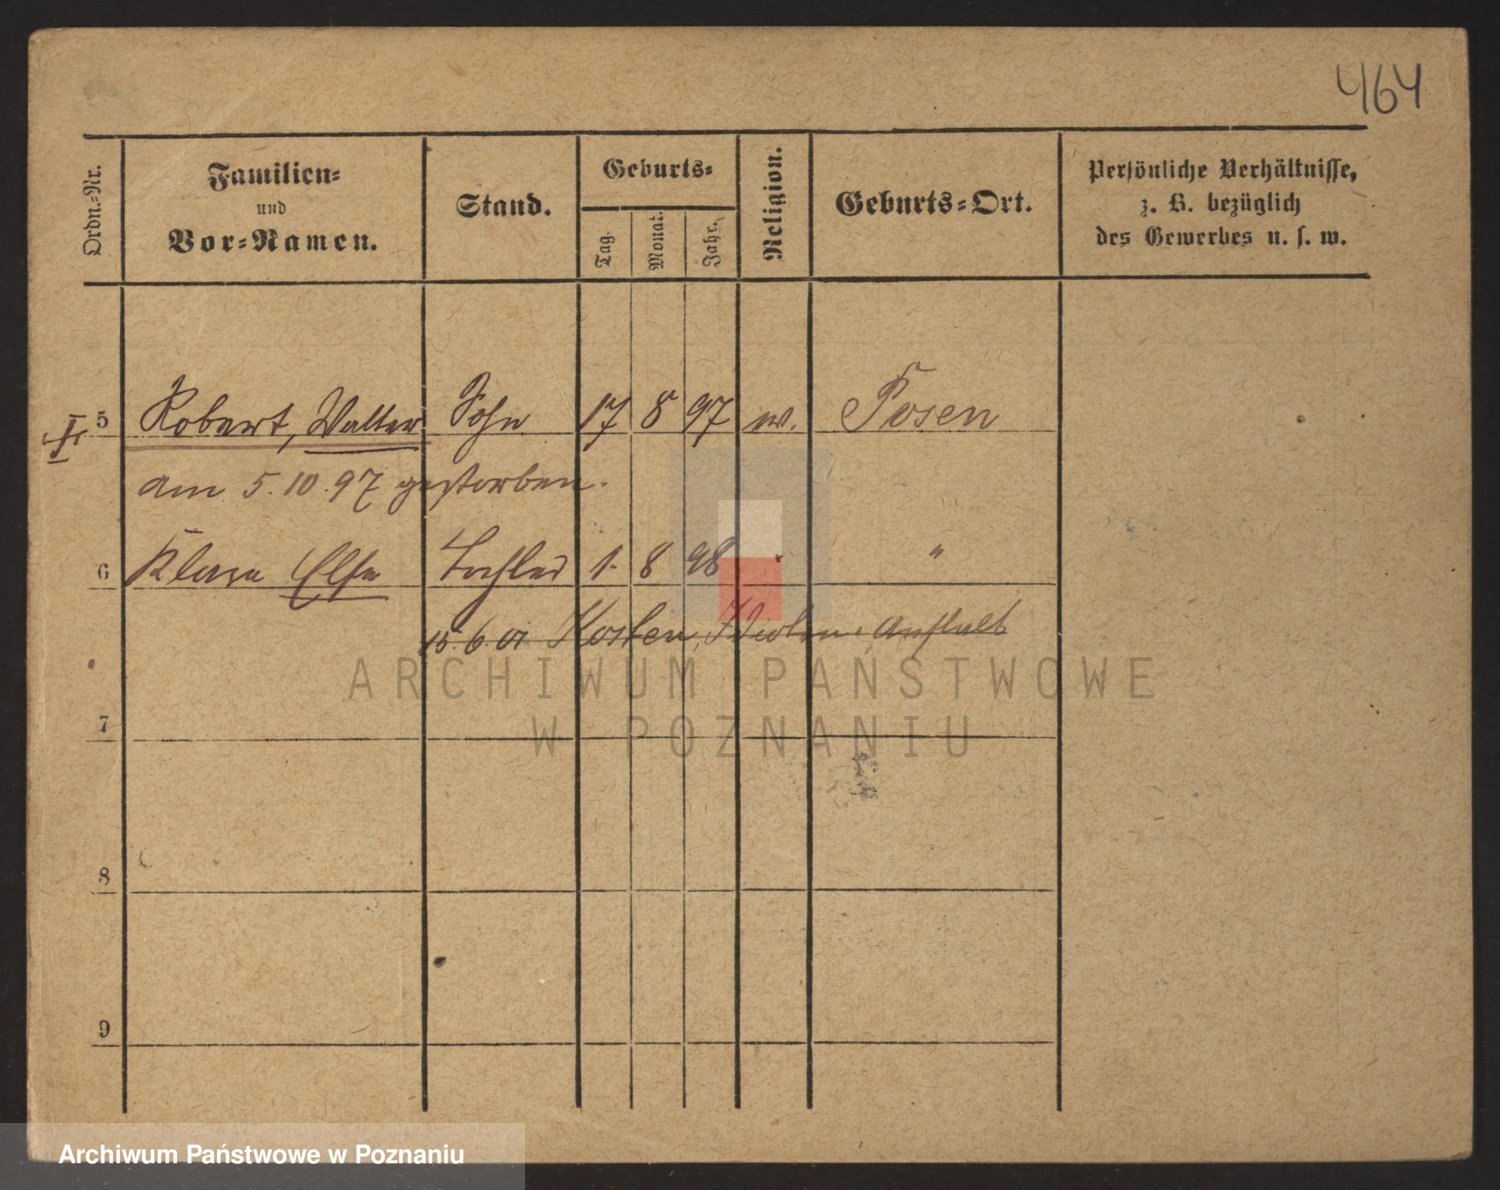 464
Ordn.-Nr.
Familien-
und
Vor-Namen.
Stand.
Geburts-
Tag.
Monat.
Jahr.
Religion.
Geburts-Ort.
Persönliche Verhältnisse,
z. B. bezüglich
des Gewerbes u. s. w.
5 Robert, Walter Sohn 17 8 97 Posen
am 5.10.97 gestorben.
6 Klara Else Tochter 1. 8 98 " "
15.6.01 Kosten, Idioten-Anstalt
7
8
9
ARCHIWUM PAŃSTWOWE
W POZNANIU
Archiwum Państwowe w Poznaniu